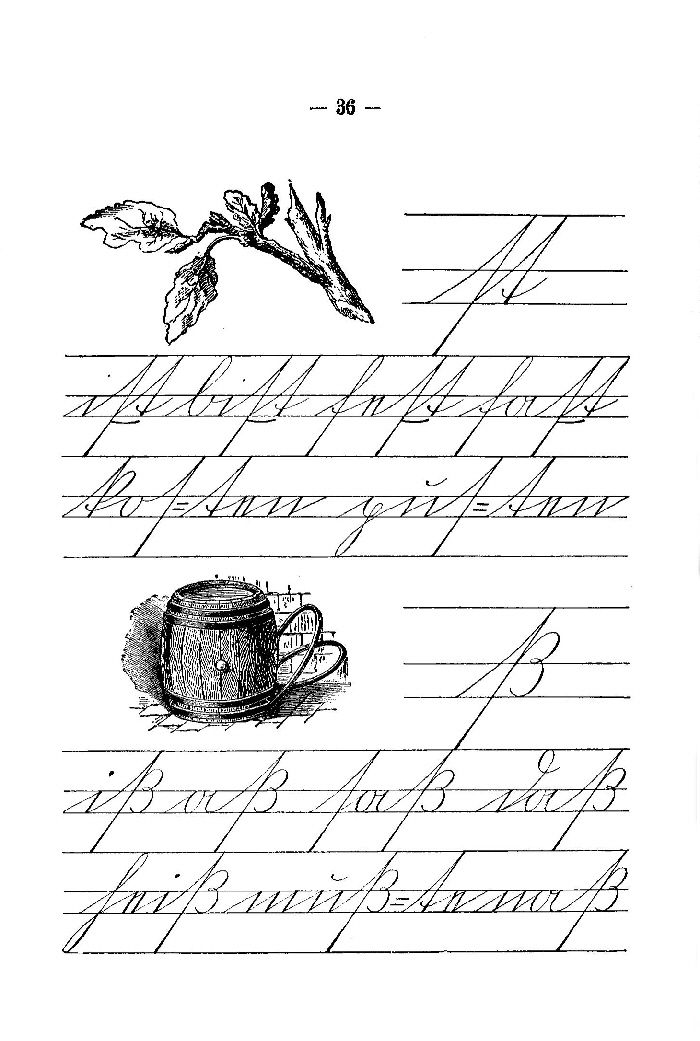 — 36 —
ſt
iſt biſt feſt faſt
koſ=ten puſ=ten
ß
iß aß ſaß daß
heiß muß=te naß